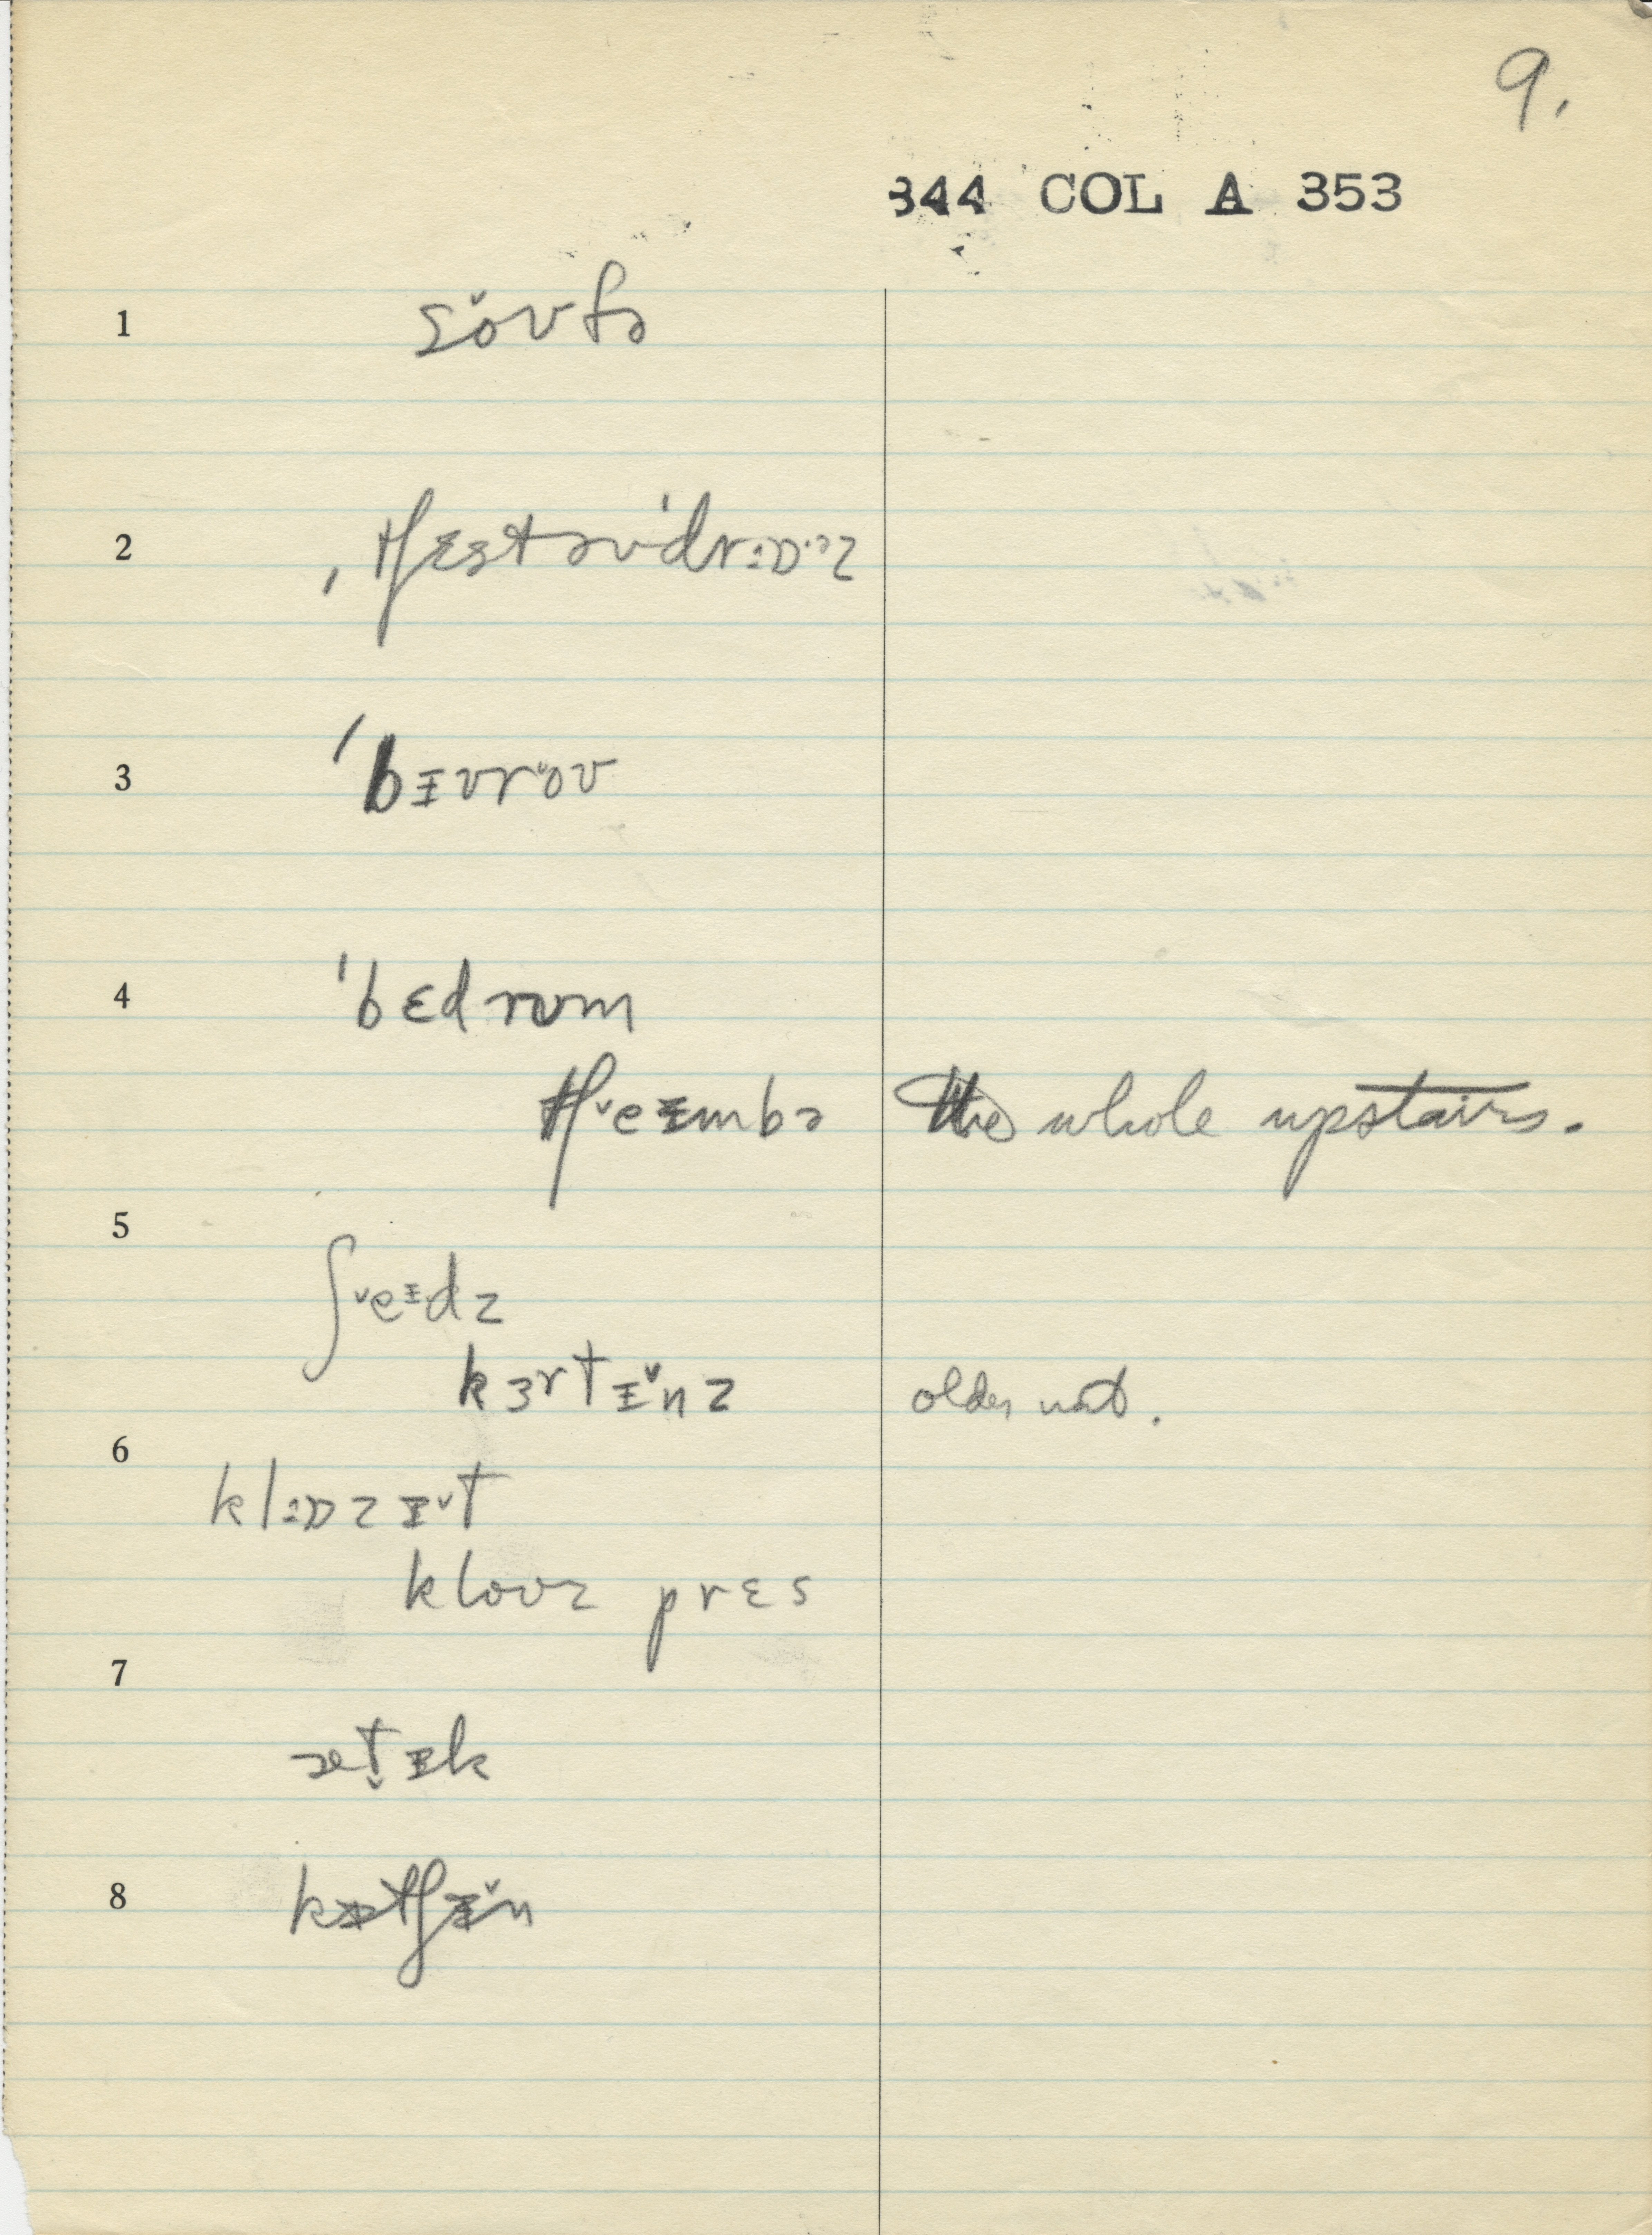 9.
344 COL A 353
1 so˅ʊfə
2 ˌtʃɛstəv'drɔːɒ·ᵊz
3 'bɪʊro˅ʊ
4 'bɛdrʊm
tʃ˅eɪmbə the whole upstairs.
5 ʃ˅eɪdz
kɜrtɪ˅nz older
6 klɔːɒzɪ˅t
kloʊz prɛs
7 æt̬ɪk
8 kɪtʃɪ˅n